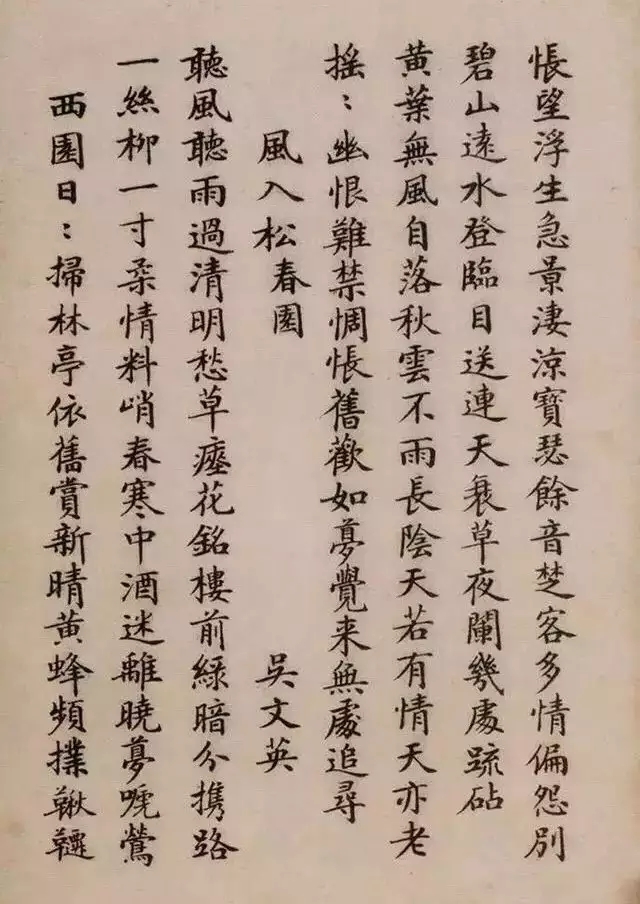 悵望浮生急景淒涼寶瑟餘音楚客多情偏怨別
碧山遠水登臨目送連天衰草夜闌幾處疏砧
黃葉無風自落秋雲不雨長陰天若有情天亦老
搖〻幽恨難禁惆悵舊歡如夢覺来無處追尋
風入松春園 吳文英
聽風聽雨過清明愁草瘞花銘樓前綠暗分携路
一絲柳一寸柔情料峭春寒中酒迷離曉夢啼鶯
西園日〻掃林亭依舊賞新晴黃蜂頻撲鞦韆